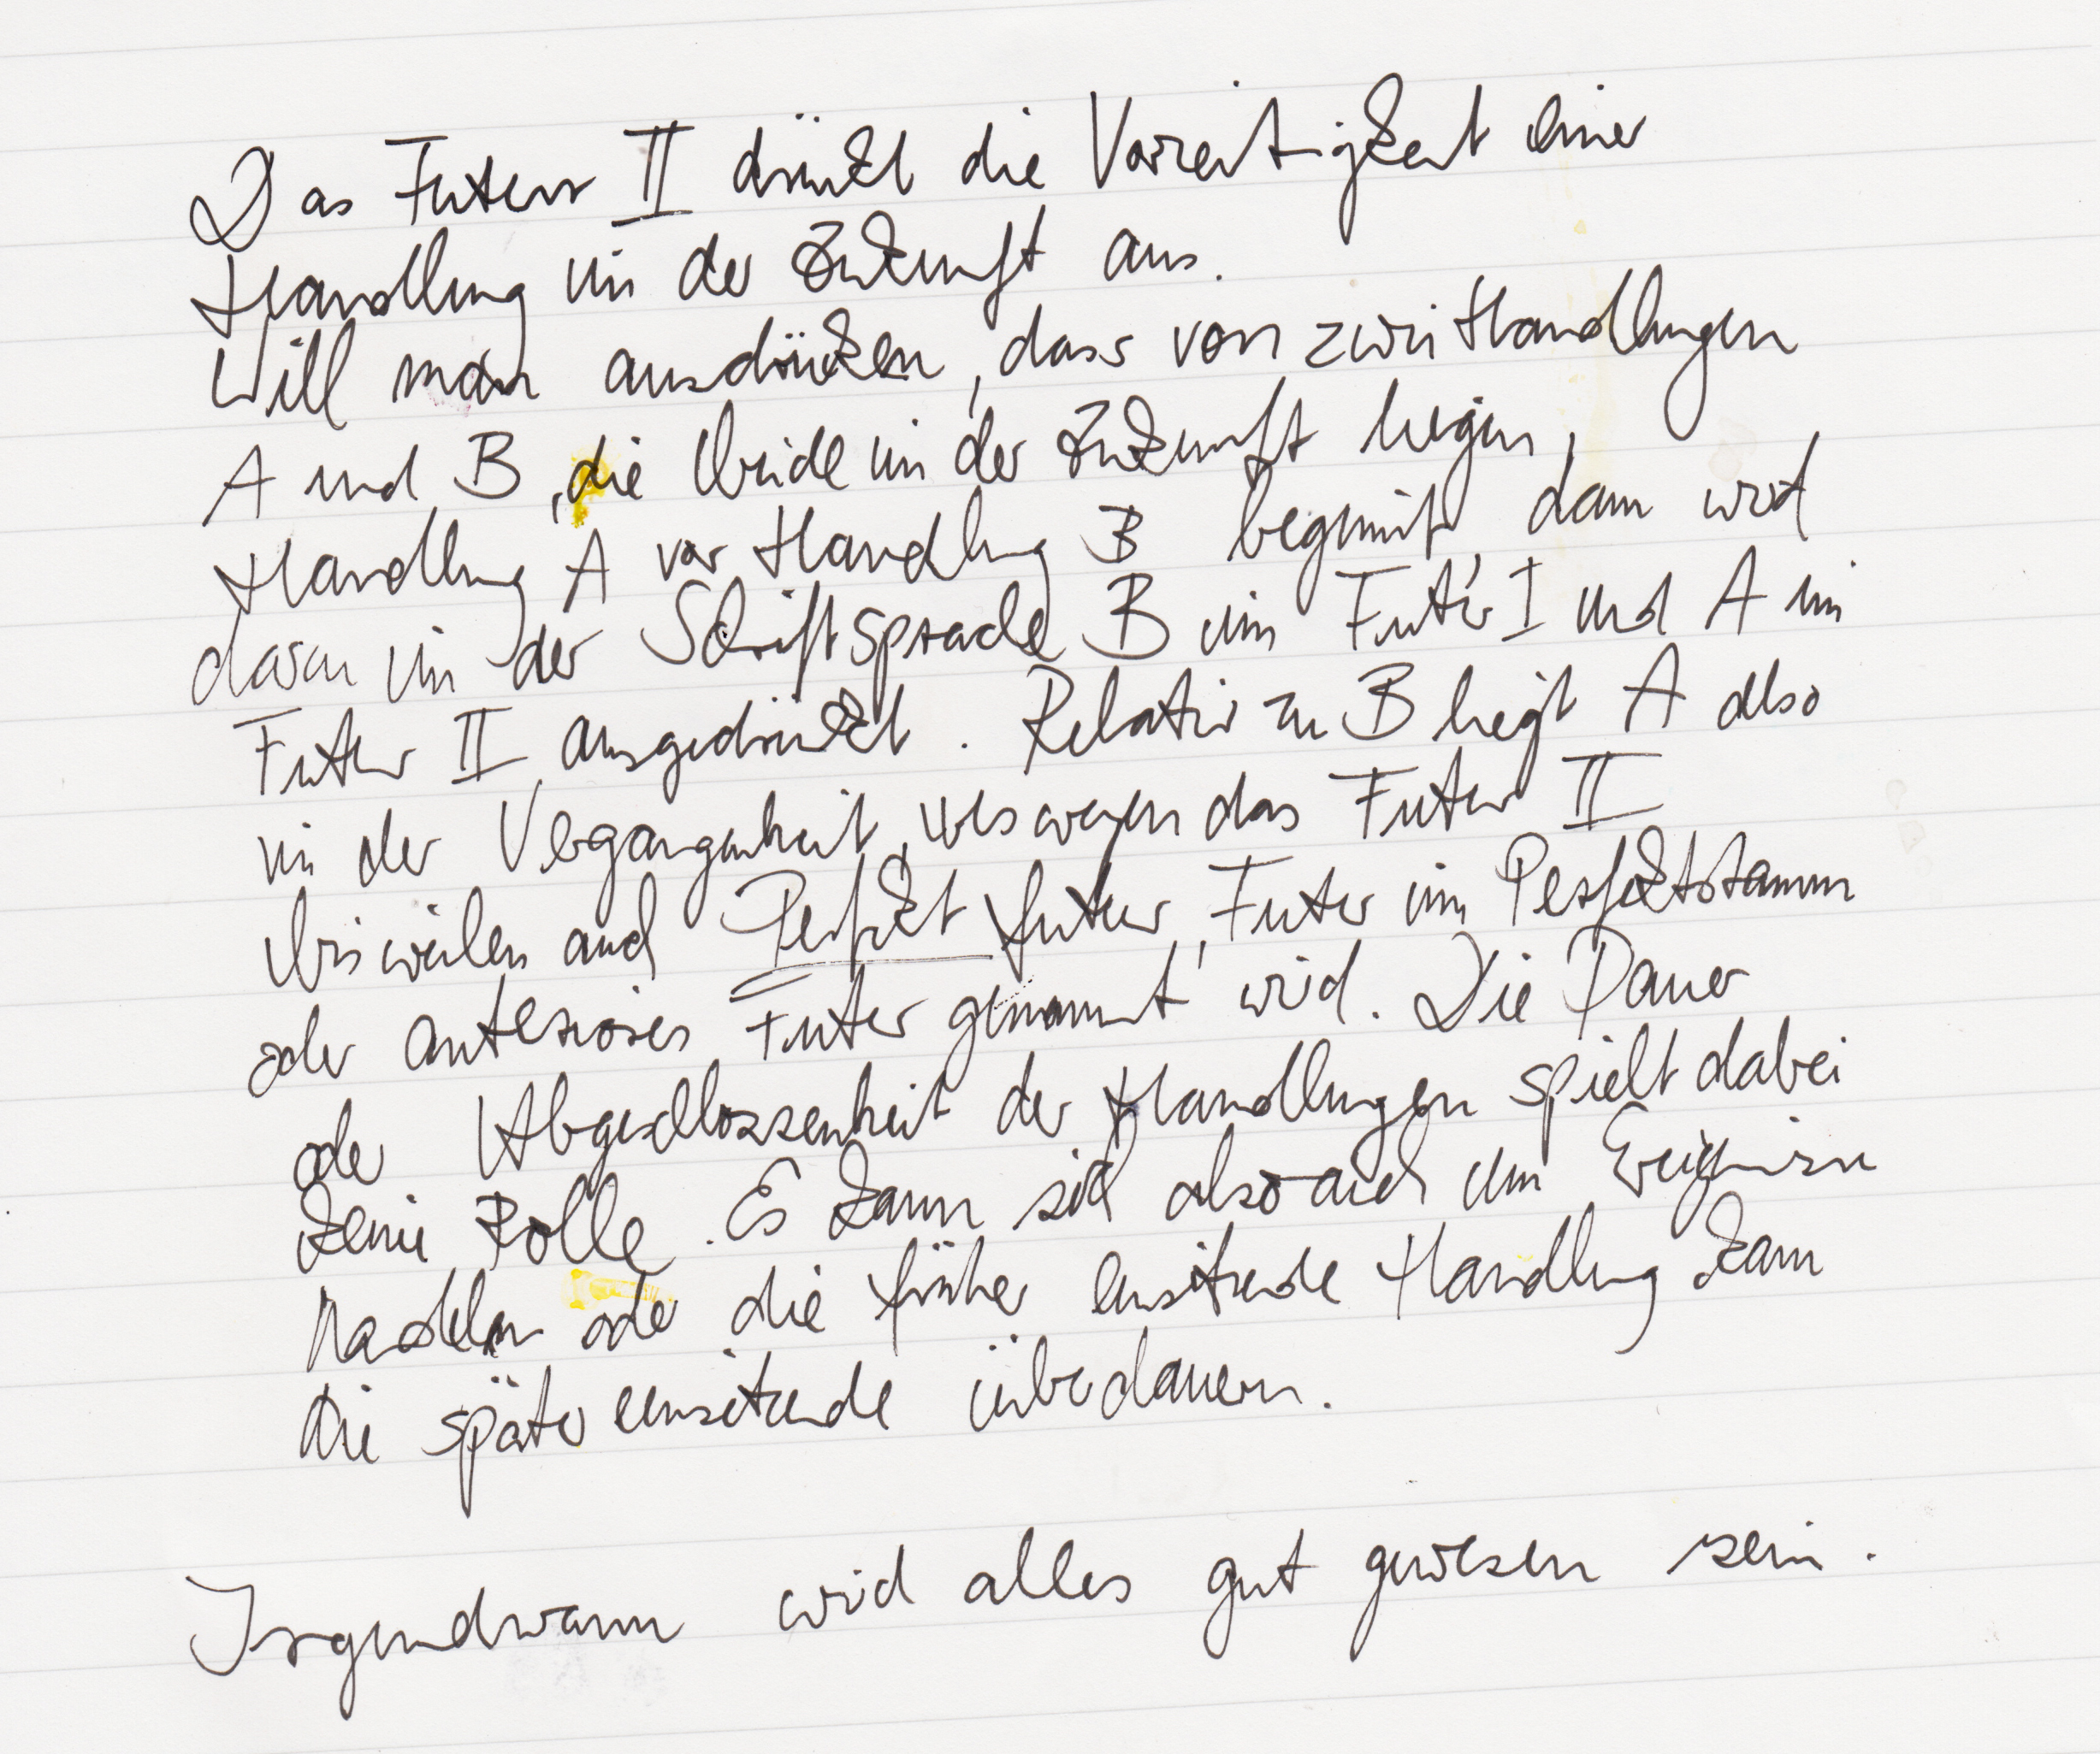 Das Futur II drückt die Vorzeitigkeit einer
Handlung in der Zukunft aus.
Will man ausdrücken, dass von zwei Handlungen
A und B, die beide in der Zukunft liegen,
Handlung A vor Handlung B beginnt, dann wird
daran in der Schriftsprache B im Futur I und A im
Futur II ausgedrückt. Relativ zu B liegt A also
in der Vergangenheit, weswegen das Futur II
bisweilen auch Perfektfutur, Futur im Perfektstamm
oder anteriores Futur genannt wird. Die Dauer
oder Abgeschlossenheit der Handlungen spielt dabei
keine Rolle. Es kann sich also auch um Ereignisse
handeln oder die früher einsetzende Handlung kann
die später einsetzende überdauern.
Irgendwann wird alles gut gewesen sein.